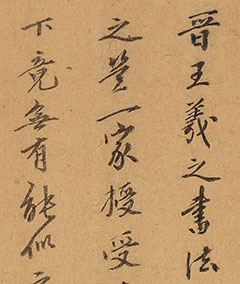 晉王羲之書法
之一家授受
下竟無有能似